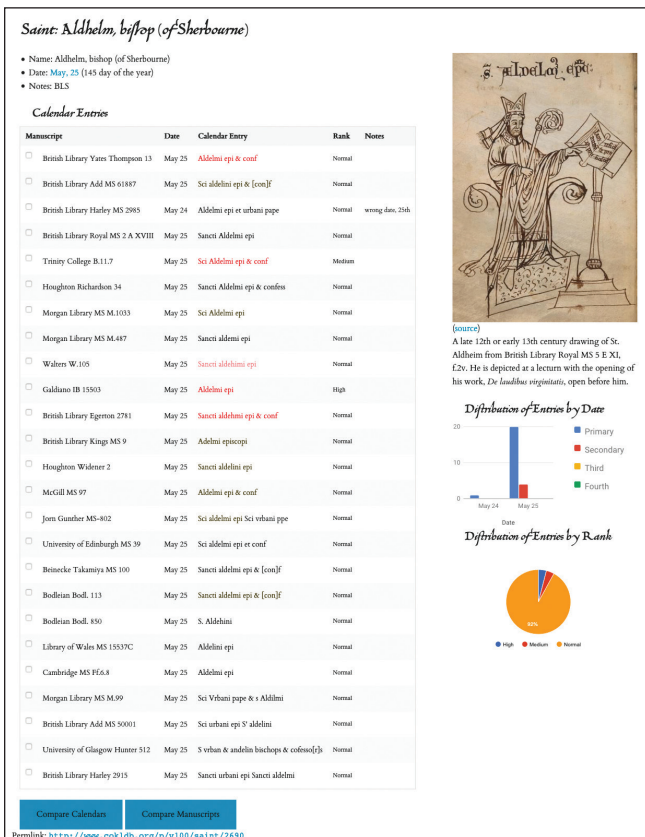 Saint: Aldhelm, bishop (of Sherbourne)
• Name: Aldhelm, bishop (of Sherbourne)
• Date: May, 25 (145 day of the year)
• Notes: BLS
Calendar Entries
Manuscript Date Calendar Entry Rank Notes
British Library Yates Thompson 13 May 25 Aldelmi epi & conf Normal
British Library Add MS 61887 May 25 Sci aldelini epi & [con]f Normal
British Library Harley MS 2985 May 24 Aldelmi epi et urbani pape Normal wrong date, 25th
British Library Royal MS 2 A XVIII May 25 Sancti Aldelmi epi Normal
Trinity College B.11.7 May 25 Sci Aldelmi epi & conf Medium
Houghton Richardson 34 May 25 Sancti Aldelmi epi & confess Normal
Morgan Library MS M.1033 May 25 Sci Aldelmi epi Normal
Morgan Library MS M.487 May 25 Sancti aldemi epi Normal
Walters W.105 May 25 Sancti aldehimi epi Normal
Galdiano IB 15503 May 25 Aldelmi epi High
British Library Egerton 2781 May 25 Sancti aldehmi epi & conf Normal
British Library Kings MS 9 May 25 Adelmi episcopi Normal
Houghton Widener 2 May 25 Sancti aldelini epi Normal
McGill MS 97 May 25 Aldelmi epi & conf Normal
Jorn Gunther MS-802 May 25 Sci aldelmi epi Sci vrbani ppe Normal
University of Edinburgh MS 39 May 25 Sci aldelmi epi et conf Normal
Beinecke Takamiya MS 100 May 25 Sancti aldelmi epi & [con]f Normal
Bodleian Bodl. 113 May 25 Sancti aldelmi epi & [con]f Normal
Bodleian Bodl. 850 May 25 S. Aldehini Normal
Library of Wales MS 15537C May 25 Aldelini epi Normal
Cambridge MS Ff.6.8 May 25 Aldelmi epi Normal
Morgan Library MS M.99 May 25 Sci Vrbani pape & s Aldilmi Normal
British Library Add MS 50001 May 25 Sci urbani epi S' aldelini Normal
University of Glasgow Hunter 512 May 25 S vrban & andelin bischops & cofesso[r]s Normal
British Library Harley 2915 May 25 Sancti urbani epi Sancti aldelmi Normal
Compare Calendars Compare Manuscripts
Permlink: http://www.cokldb.org/p/v100/saint/2690
(source)
A late 12th or early 13th century drawing of St.
Aldheim from British Library Royal MS 5 E XI,
f.2v. He is depicted at a lecturn with the opening of
his work, De laudibus virginitatis, open before him.
Distribution of Entries by Date
20
10
0
May 24 May 25
Date
Primary
Secondary
Third
Fourth
Distribution of Entries by Rank
92%
High Medium Normal